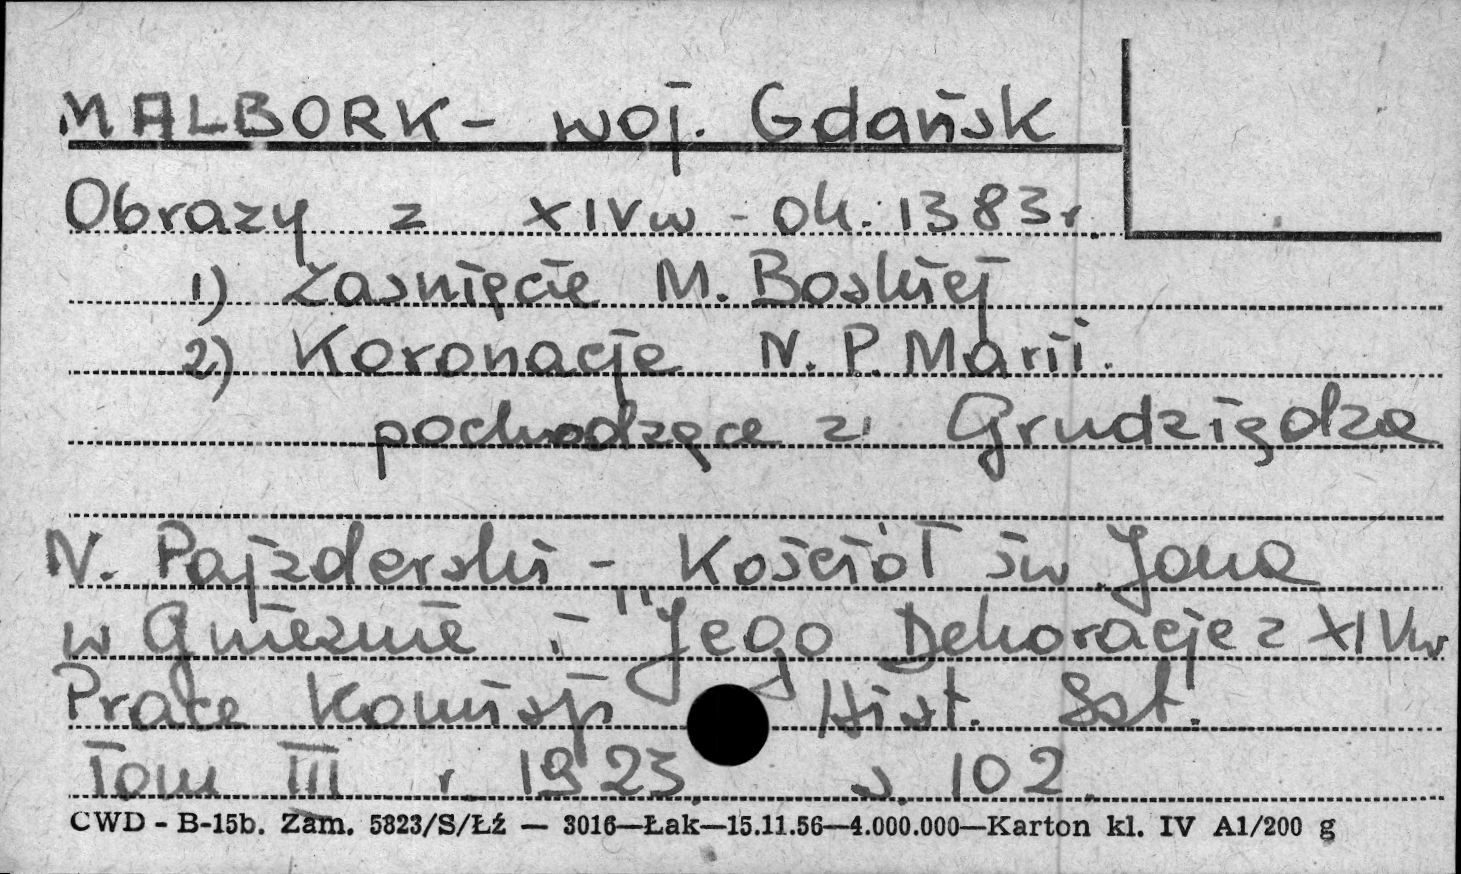 MALBORK - woj. Gdańsk
Obrazy z XIV w - ok. 1383 r.
1) Zaśnięcie M. Boskiej
2) Koronacje N. P. Marii.
pochodzące z Grudziądza
N. Pajzderski - Kościół św. Jana
w Gnieźnie i "Jego Dekoracje z XIV w
Prace Komisji Hist. Szt.
Tom III r. 1923. s. 102.
CWD - B-15b. Zam. 5823/S/Łż — 3016—Łak—15.11.56—4.000.000—Karton kl. IV A1/200 g